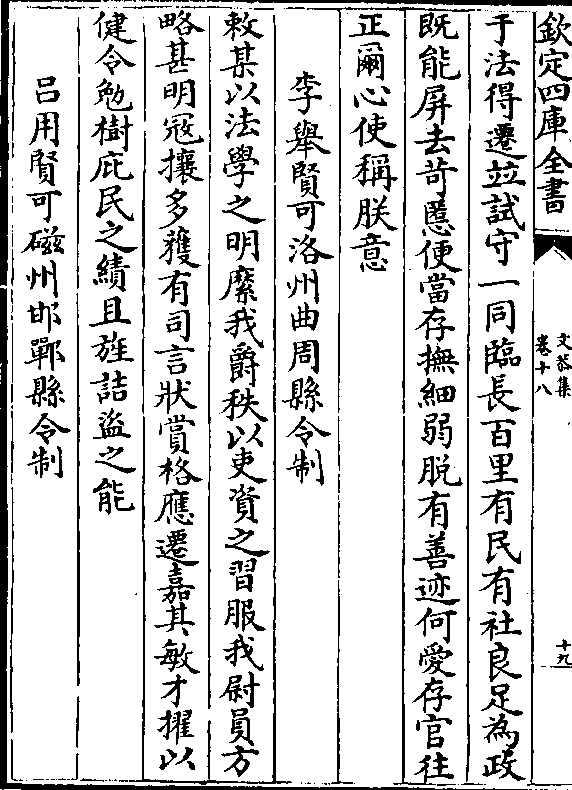 欽定四庫全書
文恭集
卷十八
十九
于法得遷並試守一同臨長百里有民有社良足為政
既能屏去苛慝便當存撫細弱脫有善迹何愛存官往
正爾心使稱朕意
李舉賢可洛州曲周縣令制
敕某以法學之明縻我爵秩以吏資之習服我尉員方
略甚明冦攘多獲有司言狀賞格應遷嘉其敏才擢以
健令勉樹庇民之績且旌詰盜之能
呂用賢可磁州邯鄲縣令制